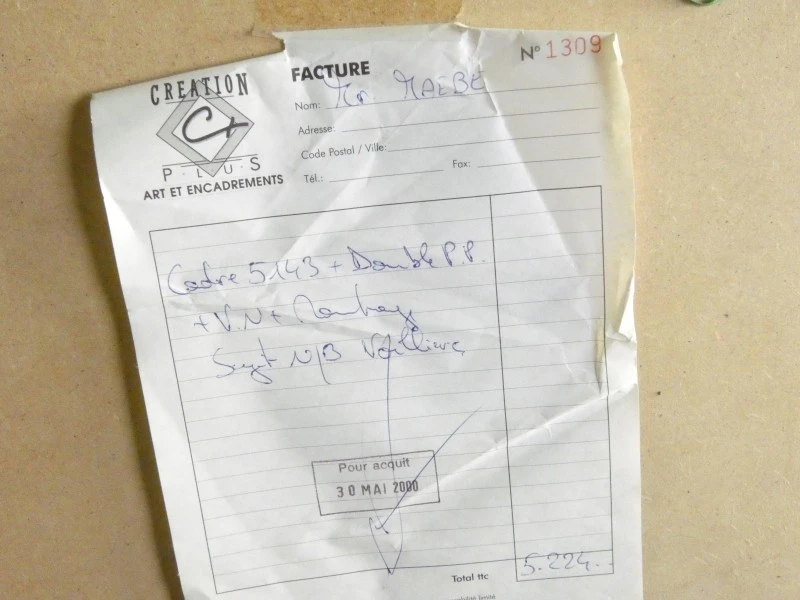 CREATION
C+
P·L·U·S
ART ET ENCADREMENTS
FACTURE
N° 1309
Nom: Mr MAEBE
Adresse:
Code Postal / Ville:
Tél.: Fax:
Cadre 5143 + Double P.P.
+ V.N +
Sujet N/B
Pour acquit
30 MAI 2000
Total ttc 5.224.-